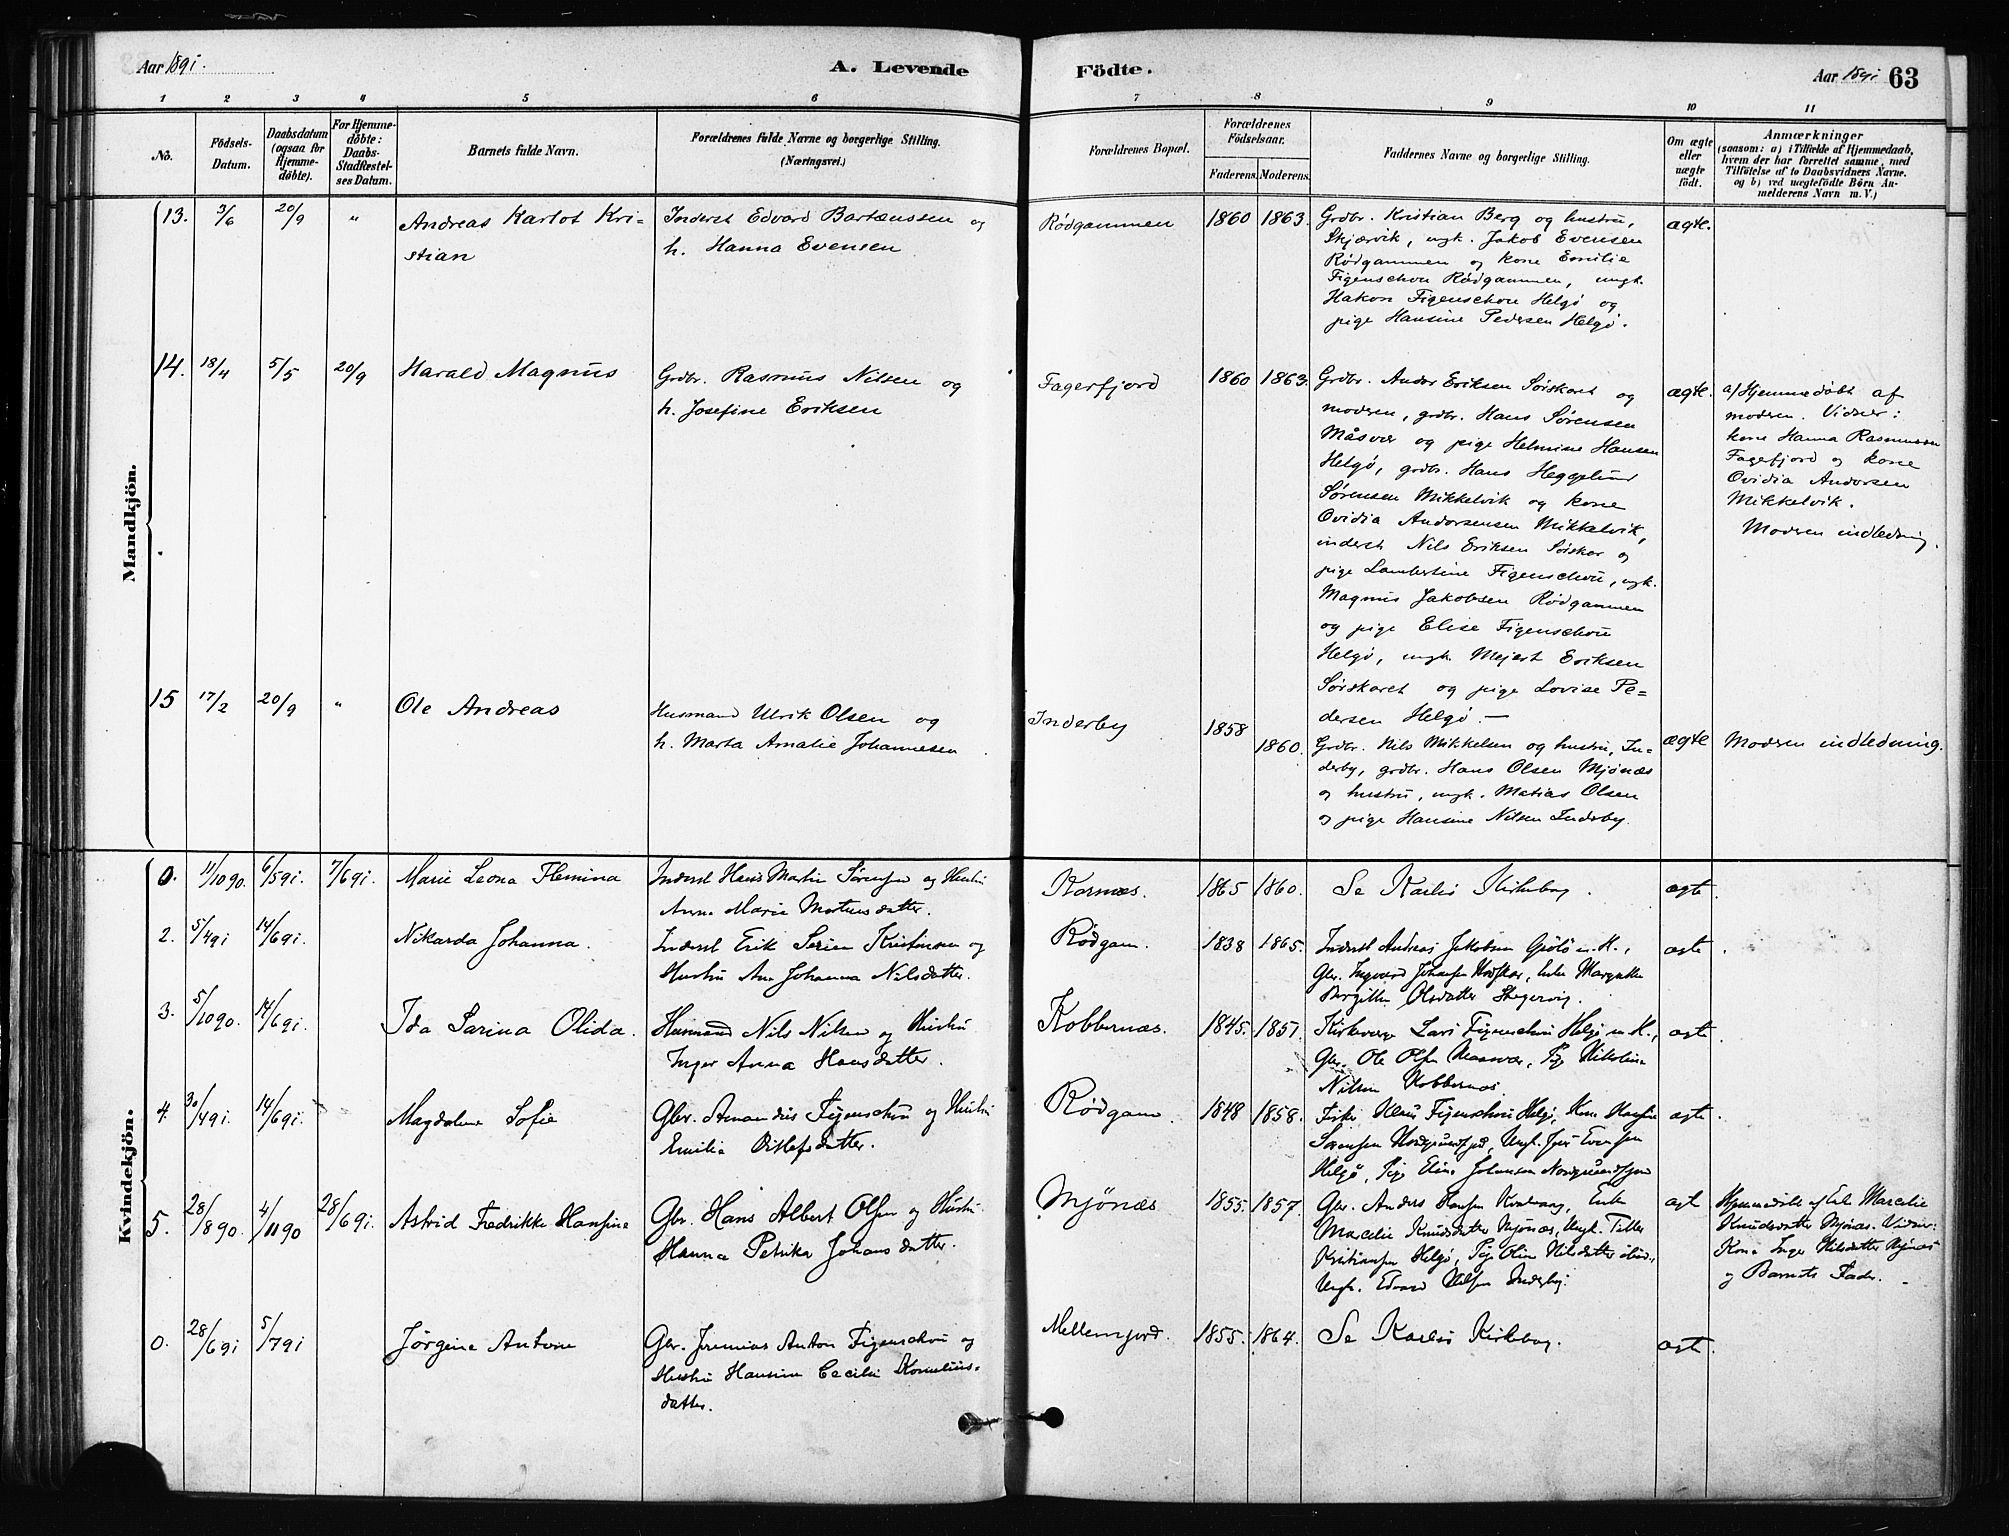 Aar 1891.
A. Levende Födte.
Aar 1891 63
1 2 3 4 5 6 7 8 9 10 11
No.
Födsels-Datum.
Daabsdatum (ogsaa for Hjemmedöbte).
For Hjemmedöbte: Daabs-Stadfæstelses Datum.
Barnets fulde Navn.
Forældrenes fulde Navne og borgerlige Stilling. (Næringsvei.)
Forældrenes Bopæl.
Forældrenes Födselsaar.
Faderens. Moderens.
Faddernes Navne og borgerlige Stilling.
Om ægte eller uægte födt.
Anmærkninger
(saasom: a) i Tilfælde af Hjemmedaab,
hvem der har forrettet samme, med
Tilföielse af to Daabsvidners Navne.
og b) ved uægtefödte Börn An-
melderens Navn m. V.)
Mandkjön.
13. 3/6 20/9 "
Andreas Karlot Kri-
stian
Inderst Edvard Bartænssen og
h. Hanna Evensen
Rødgammen
1860 1863.
Grdbr. Kristian Berg og hustru,
Skjærvik, ungk. Jakob Evensen
Rødgammen og kone Emilie
Figenschou Rødgammen, ungk.
Hakon Figenschou Helgø og
pige Hansine Pedersen Helgø.
ægte.
14. 18/4 5/5 20/9
Harald Magnus
Grdbr. Rasmus Nilsen og
h. Josefine Eriksen
Fagerfjord
1860 1863.
Grdbr. Andor Eriksen Sørskaret og
modren, grdbr. Hans Sørensen
Måsvær og pige Helmine Hansen
Helgø, grdbr. Hans Heggelund
Sørensen Mikkelvik og kone
Ovidia Andorsensen Mikkelvik,
inderst Nils Eriksen Sørskar og
pige Lambertine Figenschou, ugk.
Magnus Jakobsen Rødgammen
og pige Elise Figenschou
Helgø, ungk. Mejert Eriksen
Sørskaret og pige Lovise Pe-
dersen Helgø.
ægte.
a/ Hjemmedøbt af
modren. Vidner:
kone Hanna Rasmussen
Fagerfjord og kone
Ovidia Andorsen
Mikkelvik.
Modren indledning.
15 17/2 20/9 "
Ole Andreas
Husmand Ulrik Olsen og
h. Marta Amalie Johannesen
Inderby
1858 1860.
Grdbr. Nils Mikkelsen og hustru, In-
derby, grdbr. Hans Olsen Mjønæs
og hustru, ungk. Matias Olsen
og pige Hansine Nilsen Inderby.
ægte
Modren indledning.
Kvindekjön.
0. 11/10 90. 6/5 91. 7/6 91.
Marie Leona Flemina
Inderst Hans Martin Sørensen og Hustru
Anna Marie Mortensdatter.
Karnæs.
1865 1860.
Se Karlsö Kirkebog.
ægte
2. 5/4 91 14/6 91.
Nikarda Johanna.
Inderst Erik Kristinsen og
Hustru Ane Johanna Nilsdatter.
Rødgam.
1838 1865.
Inderst Andreas Jakobsen m. H.,
Gbr. Ingvard Johansen, Enke Margrethe
Bergitte Olsdatter.
ægte
3. 5/10 90. 14/6 91.
Ida Sarina Olida.
Husmand Nils Nilsen og Hustru
Inger Anna Hansdatter.
Kobbernæs.
1845. 1851.
Kirkeværge Lars Figenschou Helgø m. H.,
Gbr. Ole Olsen Maasvær, Pige Nikoline
Nilsen Kobbernæs
ægte
4. 30/4 91. 14/6 91.
Magdalene Sofie
Gbr. Amandus Figenschou og Hustru
Emilia Ditlefsdatter.
Rødgam
1848 1858.
Fisker Klaus Figenschou Helgø, Kone
Sørensen, Ungk. Evensen
Helgø, Pige Elina Johansen
ægte
5. 28/8 90. 4/11 90 28/6 91.
Astrid Fredrikke Hansine
Gbr. Hans Albert Olsen og Hustru
Hanna Petrika Johansdatter.
Mjönæs
1855. 1857.
Gbr. Anders Hansen, Enke
Marselie Knudsdatter Mjönæs, Ungk.
Kristiansen Helgø, Pige Olin Nilsdatter
Ungk. Edvard Nilsen Inderby.
ægt
Hjemmedöbt af Enke Marcelie
Knudsdatter Mjönæs. Vidner:
Kone Inger Nilsdatter Mjönæs
og Barnets Fader.
0. 28/6 91 5/7 91
Jörgine Antonie
Gbr. Jeremias Anton Figenschou og
Hustru Hansine Cecilie Kornelius-
datter.
Mellemjord.
1855. 1864.
Se Karlsö Kirkebog.
ægt.